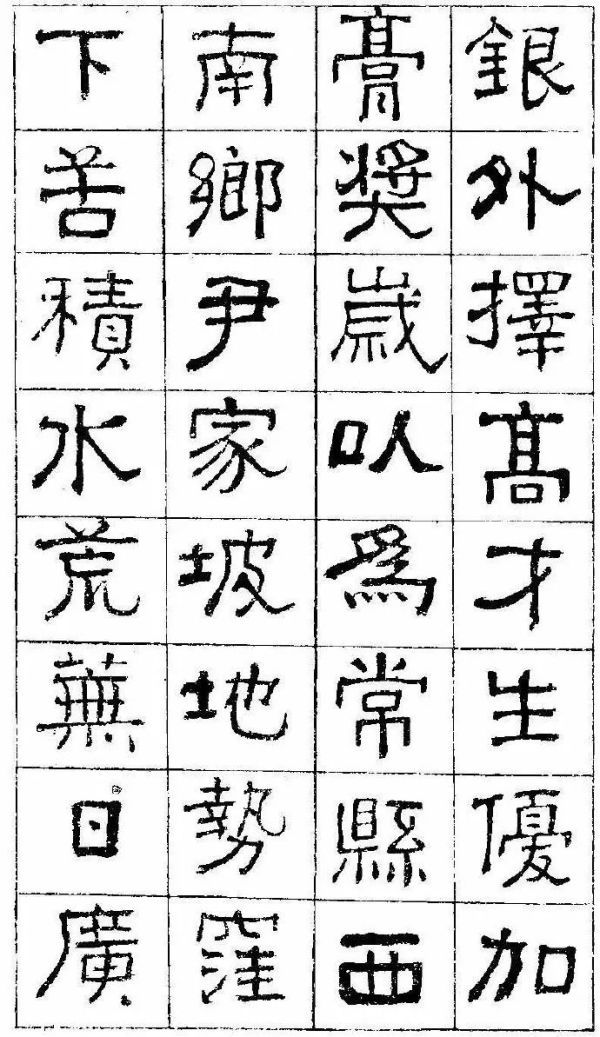 銀外擇高才生優加
膏奬歲以爲常縣西
南鄉尹家坡地勢窪
下苦積水荒蕪日廣